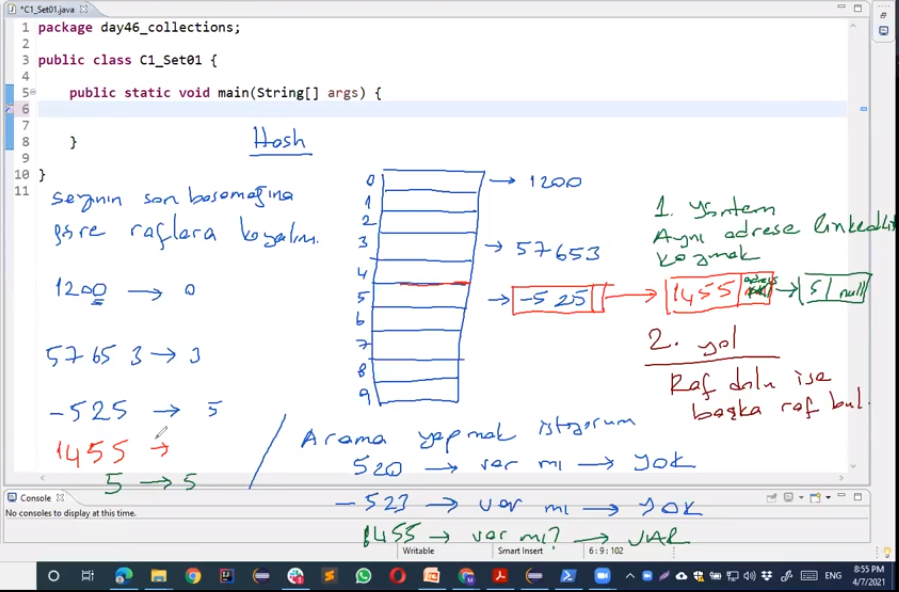 *C1_Set01.java
1 package day46_collections;
2
3 public class C1_Set01 {
4
5 public static void main(String[] args) {
6
7
8 }
9
10 }
11
Hash
sayının son basamağına
göre raflara koyalım.
1200 → 0
57653 → 3
-525 → 5
1455 →
5 → 5
0 → 1200
1
2
3 → 57653
4
5 → -525 → 1455 → 5 / null
6
7
8
9
1. yöntem
Aynı adrese linkedlis
koymak
2. yol
Raf dolu ise
başka raf bul.
Arama yapmak istiyorum
520 → var mı → yok
-523 → var mı → yok
1455 → var mı? → VAR
Console
No consoles to display at this time.
Writable
Smart Insert
6 : 9 : 102
ENG
8:55 PM
4/7/2021